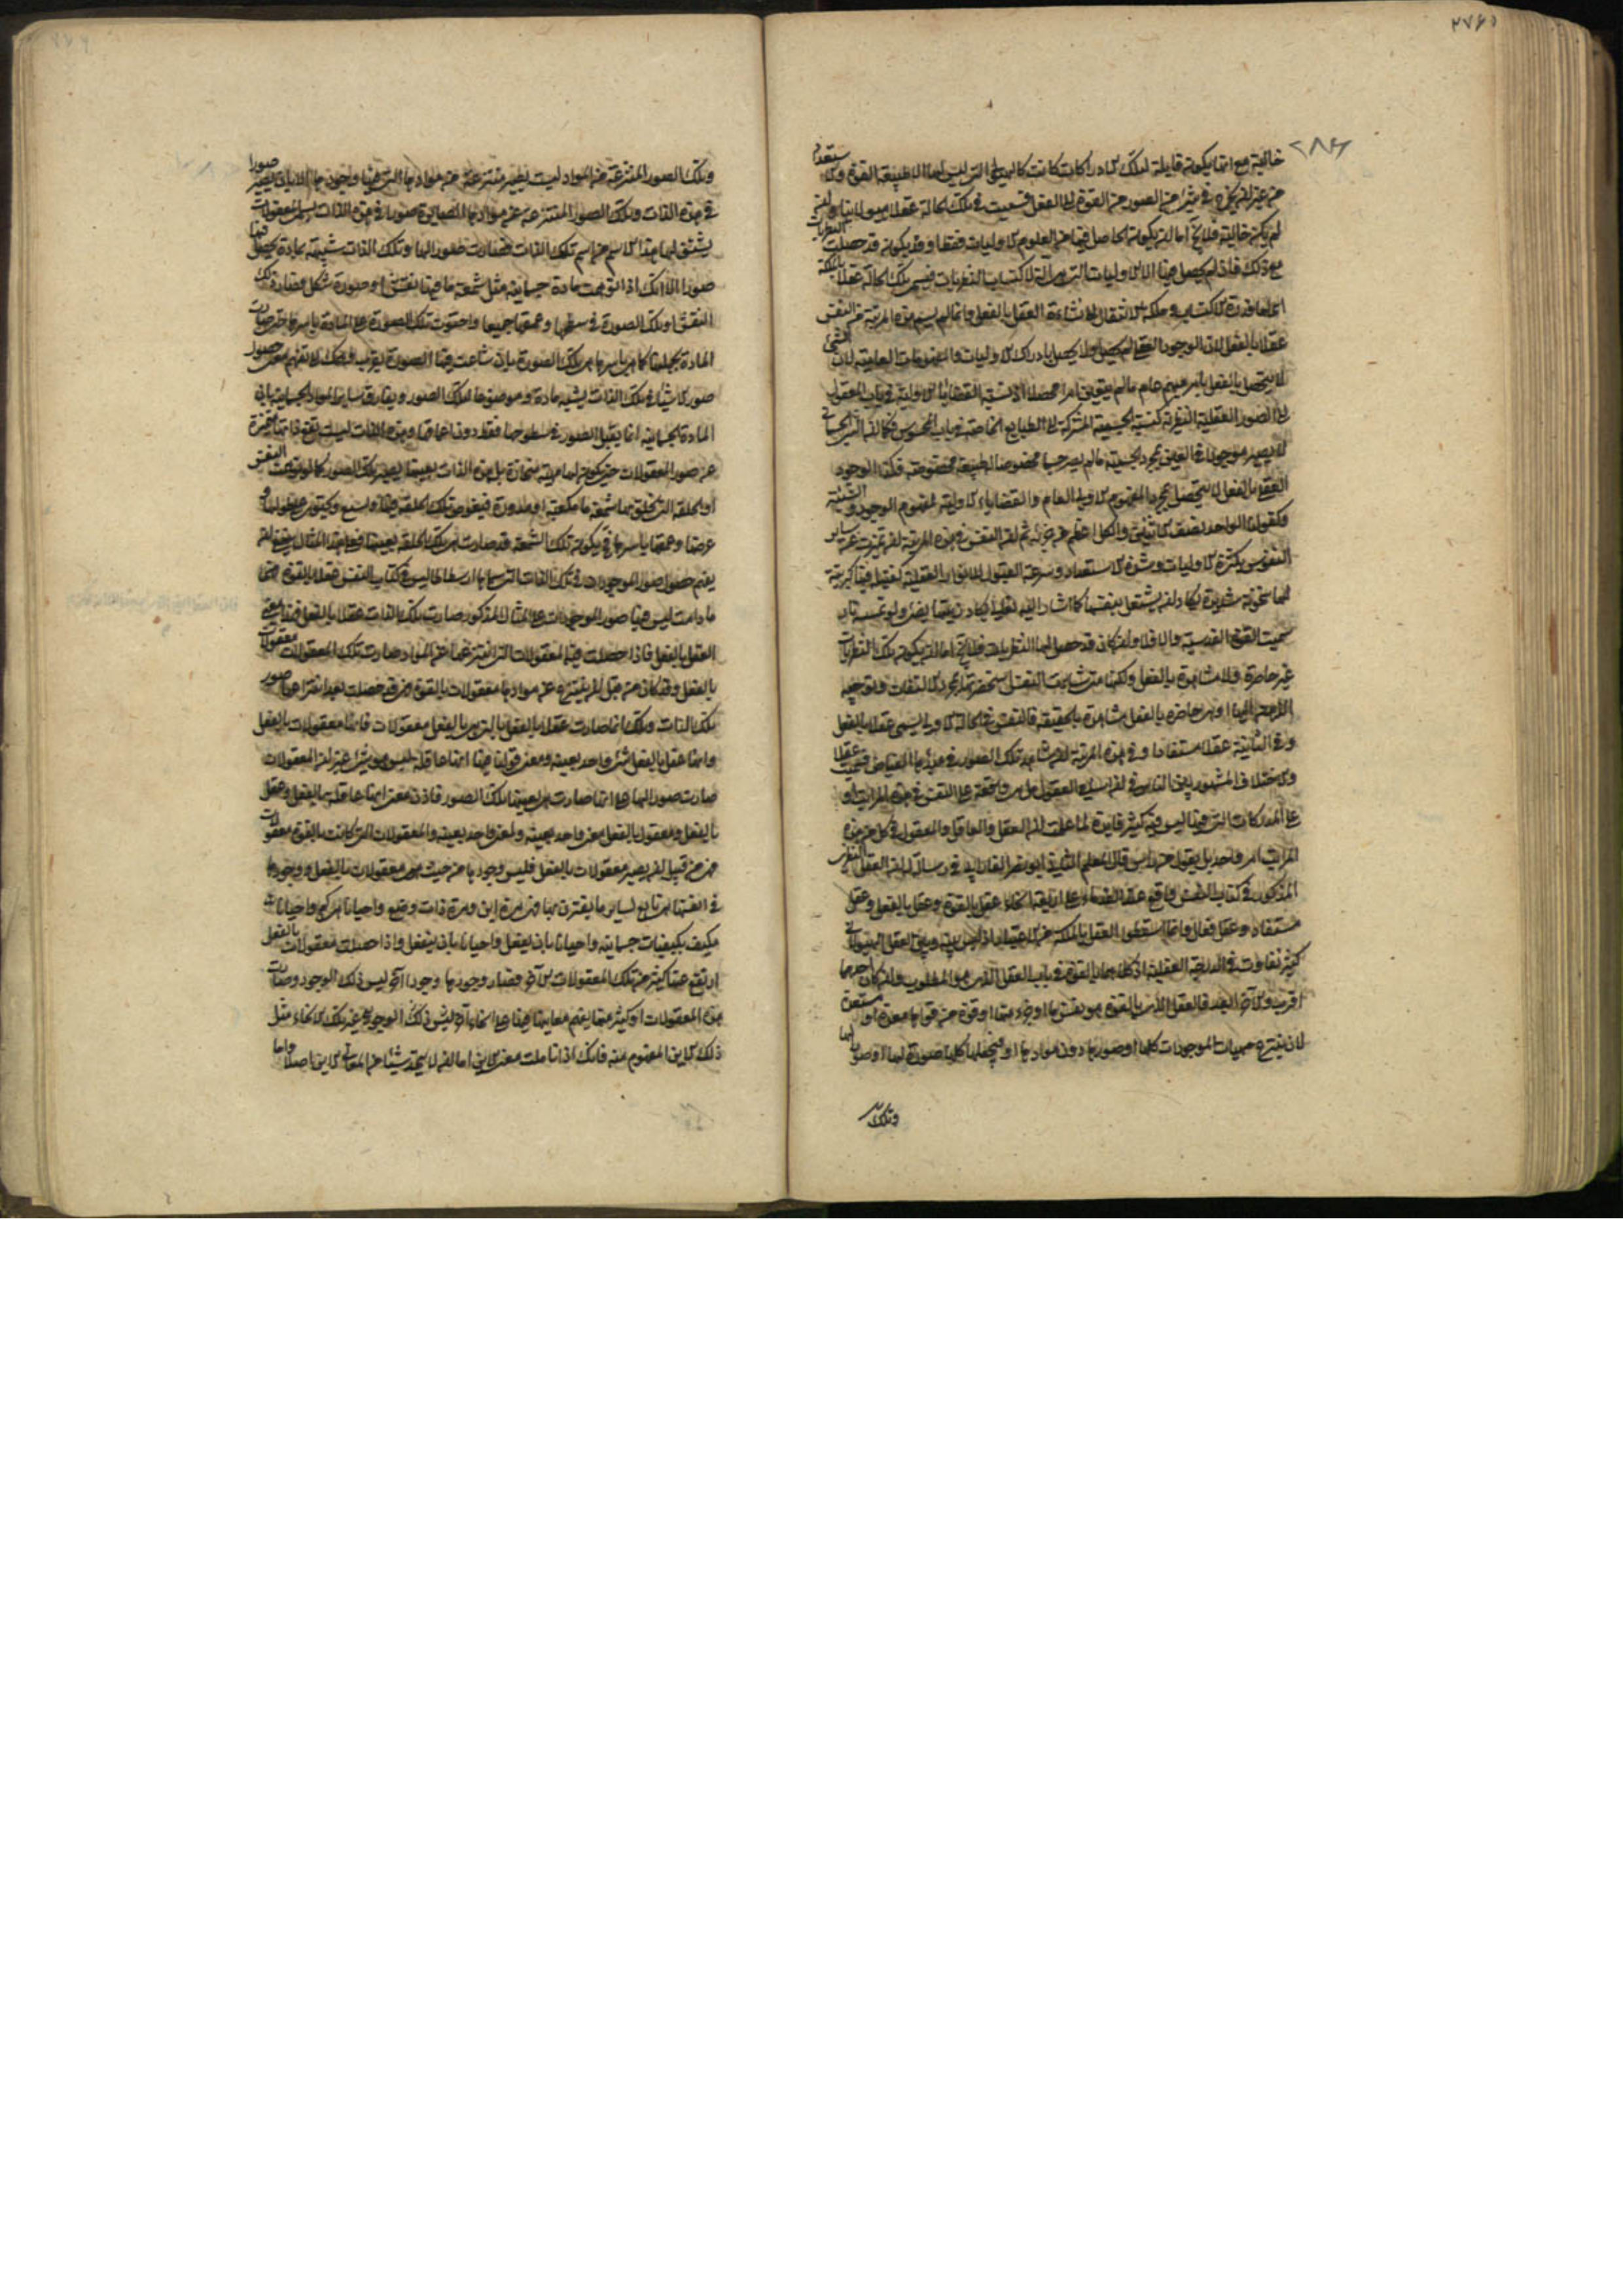 خالية مع انها يكون قابلة لتلك الادراكات كانت كالهيولى التي ليس لها الا طبيعة القوة والاستعداد
من غير ان يخرج في شيء من الصور من القوة الى العقل فسميت في تلك الحالة عقلا هيولانيا وان
لم يكن خالية فلا يخ اما ان يكون الحاصل فيها من العلوم الاوليات فقط او قد يكون قد حصلت النظريات
مع ذلك فاذا لم يحصل فيها الا الاوليات التي هي آلة لاكتساب النظريات فيسمى تلك الحالة عقلا بالملكة
اى لها قدرة الاكتساب وملكة الانتقال الى نشاءة العقل بالفعل وانما لم يسم هذه المرتبة من النفس
عقلا بالفعل لان الوجود العقلى لم يحصل بادراك الاوليات والمفهومات العامية لان الشيء
لا يتحصل بالفعل بامر مبهم عام مالم يتعين امرا محصلا
الى الصور العقلية النظرية كنسبة الجسمية المشتركة الى الطبايع الخاصة
لا يصير موجودا في العين بمجرد الجسمية مالم يصر جسما مخصوصا له طبيعة مخصوصة فكذا الوجود
العقلى بالفعل لا يتحصل بمجرد المفهوم الاولى العام والقضايا الاولية كمفهوم الوجود والشيئية
وكقولنا الواحد نصف الاثنين والكل اعظم من جزئه ثم ان النفس في هذه المرتبة ان تميزت عن ساير
النفوس بكثرة الاوليات وشدة الاستعداد وسرعة القبول للانوار العقلية كفتيلة فيها كبريتية
لها سخونة شديدة يكاد ان يشتعل بنفسها كما اشار اليه تعالى يكاد زيتها يضىء ولو لم تمسسه نار
سميت القوة القدسية والا فلا وان كان قد حصل لها النظريات فلا يخ اما ان يكون تلك النظريات
غير حاضرة ولا مشاهدة بالفعل ولكنها متى شاءت النفس استحضرتها بمجرد الالتفات وتوجيه
الذهن اليها او هي حاضرة بالفعل مشاهدة بالحقيقة فالنفس في الحالة الاولى يسمى عقلا بالفعل
وفى الثانية عقلا مستفادا
والاختلاف المشهور بين الناس في ان اسامى العقول هل هي واقعة على النفس في هذه المراتب او
على المدركات التي فيها ليس فيه كثير فايدة لما علمت ان العقل والعاقل والمعقول في كل من هذه
المراتب امر واحد بل نقول من راس قال المعلم الثاني ابو نصر الفارابي في رسالة له ان العقل النظرى
المذكور في كتاب النفس واقع عند القدماء على اربعة انحاء عقل بالقوة وعقل بالفعل وعقل
مستفاد وعقل فعال وانما اسقطوا العقل بالملكة من الاعتبار اذ ليس بينه وبين العقل الهيولاني
كثير تفاوت في الدرجة العقلية اذ كلاهما بالقوة في باب العقل الذى هو المطلوب وان كان احدهما
اقرب والآخر ابعد فالعقل الذى بالقوة هو نفس ما او جزء منها او قوة من قواها معدة او مستعدة
لان ينتزع مهيات الموجودات كلها او صورها دون موادها او فيجعلها كلها صورة لها او صورا لها
وتلك
وتلك الصور المنتزعة من المواد ليست تصير منتزعة من موادها التي فيها وجودها الا بان تصير صورا
في هذه الذات وتلك الصور المنتزعة عن موادها الصايرة صورا في هذه الذات هي المعقولات
يشتق لها هذا الاسم من اسم تلك الذات فصارت صورا لها وتلك الذات شبيهة بمادة يحصل فيها
صور الا انك اذا توهمت مادة جسمانية مثل شمعة ما فيها نقش او صورة شكل فصار ذلك
النقش او تلك الصورة في سطحها وعمقها جميعا واحتوت تلك الصورة على المادة باسرها حتى صارت
المادة بجملتها كما هي باسرها هي تلك الصورة بان شاعت فيها الصورة يقرب وهمك الى تفهم معنى حصول
صور الاشياء في تلك الذات يشبه مادة وموضوعا لتلك الصور ويفارق ساير المواد الجسمانية بان
المادة الجسمانية انما يقبل الصور في سطوحها فقط دون اعماقها وهذه الذات ليست تبقى ذاتها متميزة
عن صور المعقولات حتى يكون لها مهية منحازة بل هذه الذات بعينها يصير تلك الصور كما لو توهمت النقش
او الخلقة التي تخلق بها شمعة ما مكعبة او مدورة فيغوص تلك الخلقة فيها وتشيع وتحتوى على طولها و
عرضها وعمقها باسرها فيكون تلك الشمعة قد صارت هي تلك الخلقة بعينها فعلى هذا المثال ينبغى ان
يفهم حصول صور الموجودات في تلك الذات التي سماها ارسطاطاليس في كتاب النفس عقلا بالقوة فهى
ما دامت ليس فيها صور الموجودات على المثال المذكور صارت تلك الذات عقلا بالفعل
العقل بالفعل فاذا حصلت فيه المعقولات التي انتزعها عن المواد صارت تلك المعقولات معقولات
بالفعل وقد كان من قبل ان ينتزع عن موادها معقولات بالقوة فهى قد حصلت بعد انتزاعها صور
تلك الذات وتلك انما صارت عقلا بالفعل بالتي هي بالفعل معقولات فانها معقولات بالفعل
وانها عقل بالفعل شيء واحد بعينه ومعنى قولنا فيها انها عاقلة ليس هو شيئا غير ان المعقولات
صارت صورا لها على انها صارت هي بعينها تلك الصور فاذن معنى انها عاقلة بالفعل وعقل
بالفعل ومعقول بالفعل معنى واحد بعينه ولمعنى واحد بعينه والمعقولات التي كانت بالقوة معقولات
فهى من قبل ان يصير معقولات بالفعل فليس وجودها من حيث هي معقولات بالفعل ووجودها
في انفسها هي تابع لساير ما يقترن بها فهى مرة اين ومرة ذات وضع واحيانا هي كم واحيانا
مكيف بكيفيات جسمانية واحيانا بان يفعل واحيانا بان ينفعل واذا حصلت معقولات بالفعل
ارتفع عنها كثير من تلك المقولات الاخر فصار وجودها وجودا آخر ليس ذلك الوجود وصارت
هذه المعقولات او كثير منها يفهم معانيها فيها على انحاء آخر ليس ذلك الوجود وغير تلك الانحاء مثل
ذلك الاين المفهوم منه فانك اذا تاملت معنى الاين اما ان لا تجد شيئا من المعانى الاين اصلا واما